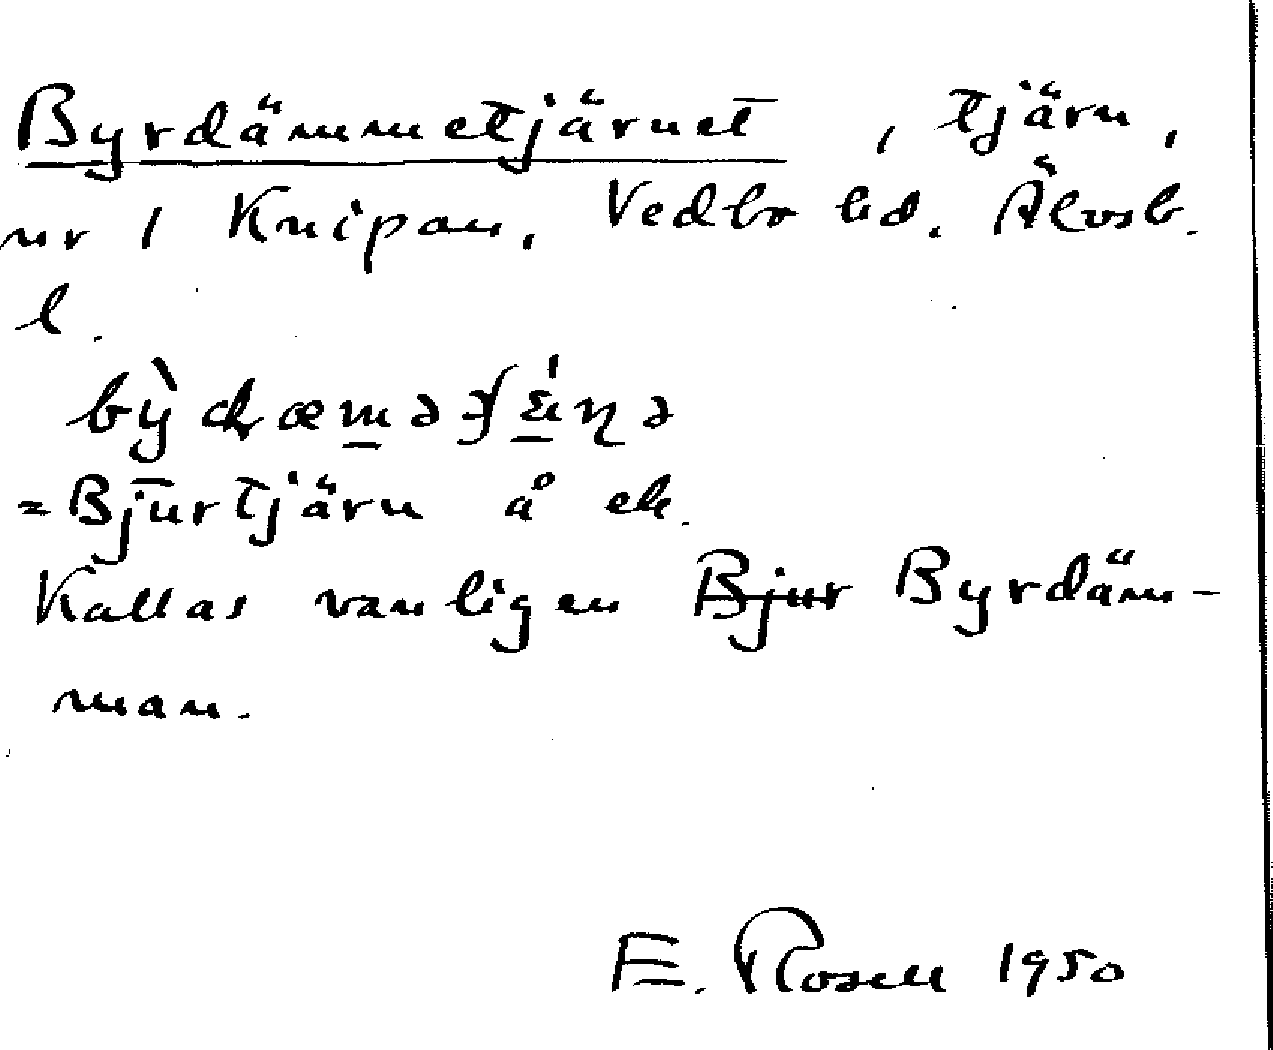 Byrdämmetjärnet, tjärn,
nr 1 Knipan, Vedbo hd. Älvsb.
l.
= Bjurtjärn å ek.
Kallas vanligen Bjur Byrdäm-
man.
E. Rosell 1950